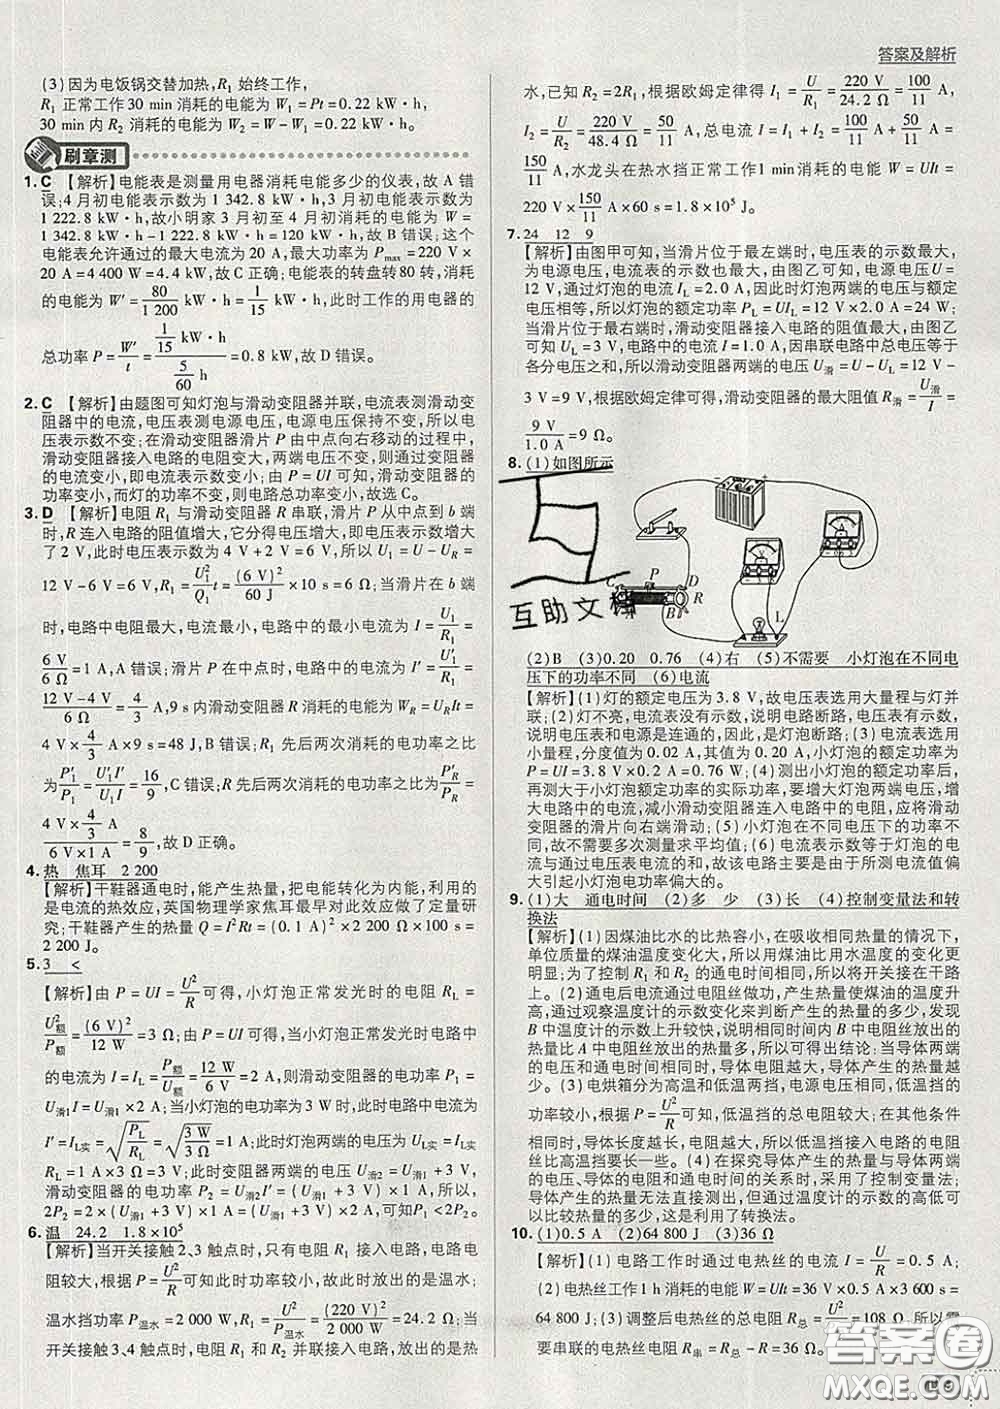 答案及解析
(3)因为电饭锅交替加热,R₁ 始终工作,
R₁ 正常工作 30 min 消耗的电能为 W₁ = Pt = 0.22 kW·h,
30 min 内 R₂ 消耗的电能为 W₂ = W - W₁ = 0.22 kW·h。
刷章测
1. C 【解析】电能表是测量用电器消耗电能多少的仪表,故 A 错
误;4 月初电能表示数为 1 342.8 kW·h,3 月初电能表示数为
1 222.8 kW·h,故小明家 3 月初至 4 月初消耗的电能为 W =
1 342.8 kW·h - 1 222.8 kW·h = 120 kW·h,故 B 错误;这个
电能表允许通过的最大电流为 20 A,最大功率为 Pmax = 220 V ×
20 A = 4 400 W = 4.4 kW,故 C 正确;电能表的转盘转 80 转,消耗
的电能为 W′ = 80/1 200 kW·h = 1/15 kW·h,此时工作的用电器的
总功率 P = W′/t = (1/15 kW·h)/(5/60 h) = 0.8 kW,故 D 错误。
2. C 【解析】由题图可知灯泡与滑动变阻器并联,电流表测滑动变
阻器中的电流,电压表测电源电压,电源电压保持不变,所以电
压表示数不变;在滑动变阻器滑片 P 由中点向右移动的过程中,
滑动变阻器接入电路的电阻变大,两端电压不变,则通过变阻器
的电流变小,即电流表示数变小;由 P = UI 可知,滑动变阻器的
功率变小,而灯的功率不变,则电路总功率变小,故选 C。
3. D 【解析】电阻 R₁ 与滑动变阻器 R 串联,滑片 P 从中点到 b 端
时,R 连入电路的阻值增大,它分得电压增大,即电压表示数增大
了 2 V,此时电压表示数为 4 V + 2 V = 6 V,所以 U₁ = U - U_R =
12 V - 6 V = 6 V,R₁ = U₁²/Q₁ t = (6 V)²/60 J × 10 s = 6 Ω;当滑片在 b 端
时,电路中电阻最大,电流最小,电路中的最小电流为 I = U₁/R₁ =
6 V/6 Ω = 1 A,A 错误;滑片 P 在中点时,电路中的电流为 I′ = U′₁/R₁ =
(12 V - 4 V)/6 Ω = 4/3 A,9 s 内滑动变阻器 R 消耗的电能为 W_R = U_R It =
4 V × 4/3 A × 9 s = 48 J,B 错误;R₁ 先后两次消耗的电功率之比
为 P′₁/P₁ = U′₁I′/U₁I = 16/9,C 错误;R 先后两次消耗的电功率之比为 P′_R/P_R =
(4 V × 4/3 A)/(6 V × 1 A) = 8/9,故 D 正确。
4. 热 焦耳 2 200
【解析】干鞋器通电时,能产生热量,把电能转化为内能,利用的
是电流的热效应,英国物理学家焦耳最早对此效应做了定量研
究;干鞋器产生的热量 Q = I²Rt = (0.1 A)² × 400 Ω × 550 s =
2 200 J。
5. 3 <
【解析】由 P = UI = U²/R 可得,小灯泡正常发光时的电阻 R_L =
U额²/P额 = (6 V)²/12 W = 3 Ω;由 P = UI 可得,当小灯泡正常发光时电路中
的电流为 I = I_L = P额/U额 = 12 W/6 V = 2 A,则滑动变阻器的电功率 P₁ =
U滑1 I = U滑1 × 2 A;当小灯泡的电功率为 3 W 时,此时电路中电流为
I′ = I_L实 = √(P_L/R_L) = √(3 W/3 Ω) = 1 A;此时灯泡两端的电压为 U_L实 = I_L实
R_L = 1 A × 3 Ω = 3 V;此时变阻器两端的电压 U滑2 = U滑1 + 3 V,
滑动变阻器的电功率 P₂ = U滑2 I′ = (U滑1 + 3 V) × 1 A,所以,
2P₂ = 2 × (U滑1 + 3 V) × 1 A = (U滑1 + 3 V) × 2 A,可知 P₁ < 2P₂。
6. 温 24.2 1.8×10⁵
【解析】当开关接触 2、3 触点时,只有电阻 R₁ 接入电路,电路电
阻较大,根据 P = U²/R 可知此时功率较小,所以电路的挡位是温水;
温水挡功率 P温水 = 2 000 W,R₁ = U²/P温水 = (220 V)²/2 000 W = 24.2 Ω;当
开关接触 3、4 触点时,电阻 R₁ 和 R₂ 并联接入电路,故此时是热
水,已知 R₂ = 2R₁,根据欧姆定律得 I₁ = U/R₁ = 220 V/24.2 Ω = 100/11 A,
I₂ = U/R₂ = 220 V/48.4 Ω = 50/11 A,总电流 I = I₁ + I₂ = 100/11 A + 50/11 A =
150/11 A,水龙头在热水挡正常工作 1 min 消耗的电能 W = UIt =
220 V × 150/11 A × 60 s = 1.8 × 10⁵ J。
7. 24 12 9
【解析】由图甲可知,当滑片位于最左端时,电压表的示数最大,
为电源电压,电流表的示数也最大,由图乙可知,电源电压 U =
12 V,通过灯泡的电流 I_L = 2.0 A,因此时灯泡的电压与额定
电压相等,所以灯泡的额定功率 P = UI_L = 12 V × 2.0 A = 24 W;
当滑片位于最右端时,滑动变阻器接入电路的阻值最大,由图乙
可知 U_L = 3 V,电路中的电流 I = 1.0 A,因串联电路中总电压等于
各分电压之和,所以滑动变阻器两端的电压 U滑 = U - U_L = 12 V -
3 V = 9 V,根据欧姆定律可得,滑动变阻器的最大阻值 R滑 = U滑/I =
9 V/1.0 A = 9 Ω。
8. (1)如图所示
C P D A B R L
互助文档
(2)B (3)0.20 0.76 (4)右 (5)不需要 小灯泡在不同电
压下的功率不同 (6)电流
【解析】(1)灯的额定电压为 3.8 V,故电压表选用大量程与灯并
联;(2)灯不亮,电流表没有示数,说明电路断路,电压表有示数,
说明电压表和电源是连通的,因此,是灯泡断路;(3)电流表选用
小量程,分度值为 0.02 A,其值为 0.20 A,小灯泡的额定功率为
P = UI = 3.8 V × 0.2 A = 0.76 W;(4)测出小灯泡的额定功率后,
再测大于小灯泡额定功率的实际功率,要增大灯泡两端电压,增
大电路中的电流,减小滑动变阻器连入电路中的电阻,应将滑动
变阻器的滑片向右端滑动;(5)小灯泡在不同电压下的功率不
同,故不需要多次测量求平均值;(6)电流表示数等于灯泡的电
流与通过电压表电流的和,故该电路主要是由于所测电流值偏
大引起小灯泡电功率偏大的。
9. (1)大 通电时间 (2)多 少 (3)长 (4)控制变量法和转
换法
【解析】(1)因煤油比水的比热容小,在吸收相同热量的情况下,
单位质量的煤油温度变化大,所以用煤油比用水温度的变化更
明显;为了控制 R₁ 和 R₂ 的通电时间相同,所以将开关接在干路
上。(2)通电后电流通过电阻丝做功,产生热量使煤油的温度升
高,通过观察温度计的示数变化来判断产生的热量的多少,发现
B 中温度计的示数上升较快,说明相同时间内 B 中电阻丝放出的
热量比 A 中电阻丝放出的热量多,所以可得出结论:当导体两端
的电压和通电时间相同时,导体的电阻越大,电流产生的热量越
少。(3)电烘箱分为高温和低温两挡,电源电压相同,低温挡的
功率较小,根据 P = U²/R 可知,低温挡的总电阻较大;在其他条件
相同时,导体长度越长,电阻越大,所以低温挡接入电路的电阻
丝比高温挡要长一些。(4)在探究导体产生的热量与导体两端
的电压、导体的电阻和通电时间的关系时,采用了控制变量法;
导体产生的热量无法直接测出,但通过温度计的示数的高低可
以比较热量的多少,这是利用了转换法。
10. (1)0.5 A (2)64 800 J (3)36 Ω
【解析】(1)电路工作时通过电热丝的电流 I = U/R = 0.5 A;
(2)电热丝工作 1 h 消耗的电能 W = UIt = 36 V × 0.5 A × 3 600 s =
64 800 J;(3)调整后电热丝的总电阻 R总 = U²/P = 108 Ω,所以需
要串联的电热丝电阻 R串 = R总 - R = 36 Ω。
答案圈
MXQE.COM